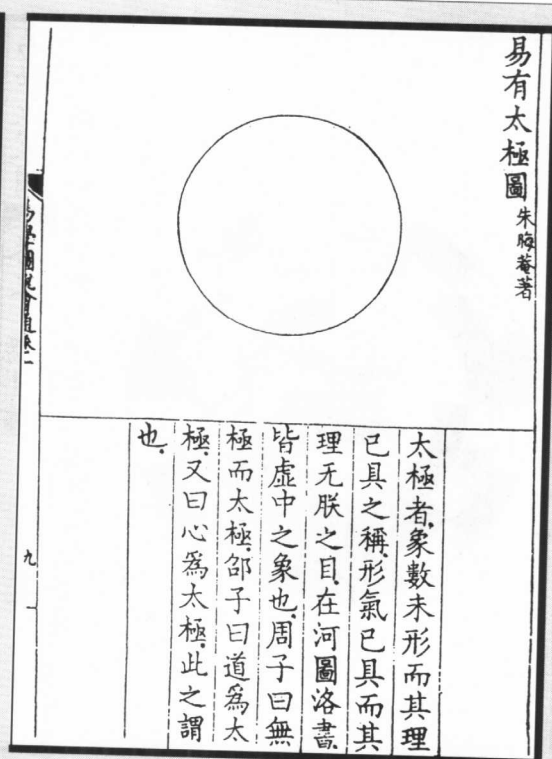 易有太極圖 朱晦菴著
太極者象數未形而其理
已具之稱形氣已具而其
理无朕之目在河圖洛書
皆虛中之象也周子曰無
極而太極邵子曰道為太
極又曰心為太極此之謂
也
易學圖說會通卷一
九
一